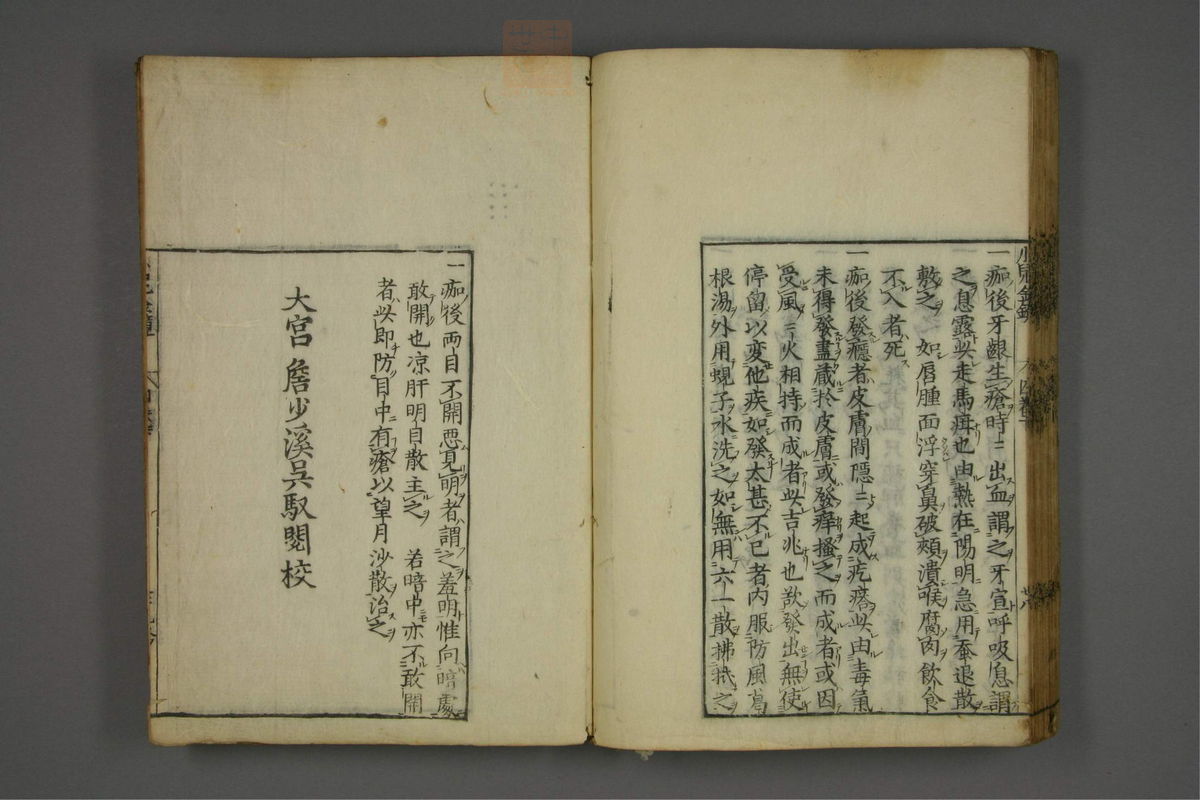 一痂後牙齦生瘡時〻出血謂之牙宣呼吸息謂
之息露此走馬疳也由熱在陽明急用蚕退散
敷之如唇腫面浮穿鼻破頰潰喉腐肉飲食
不入者死
一痂後發癮者皮膚間隱〻起成疙瘩此由毒氣
未得發盡藏於皮膚或發痒搔之而成者或因
受風〻火相搏而成者此吉兆也欲發出無使
停留以変他疾如發太甚不已者內服防風葛
根湯外用蜆子水洗之如無用六一散拂抵之
一痂後兩目不開惡見明者謂之羞明惟向暗處
敢開也凉肝明目散主之 若暗中亦不敢開
者此即防目中有瘡以望月沙散治之
大宮詹少溪吳馭閱校